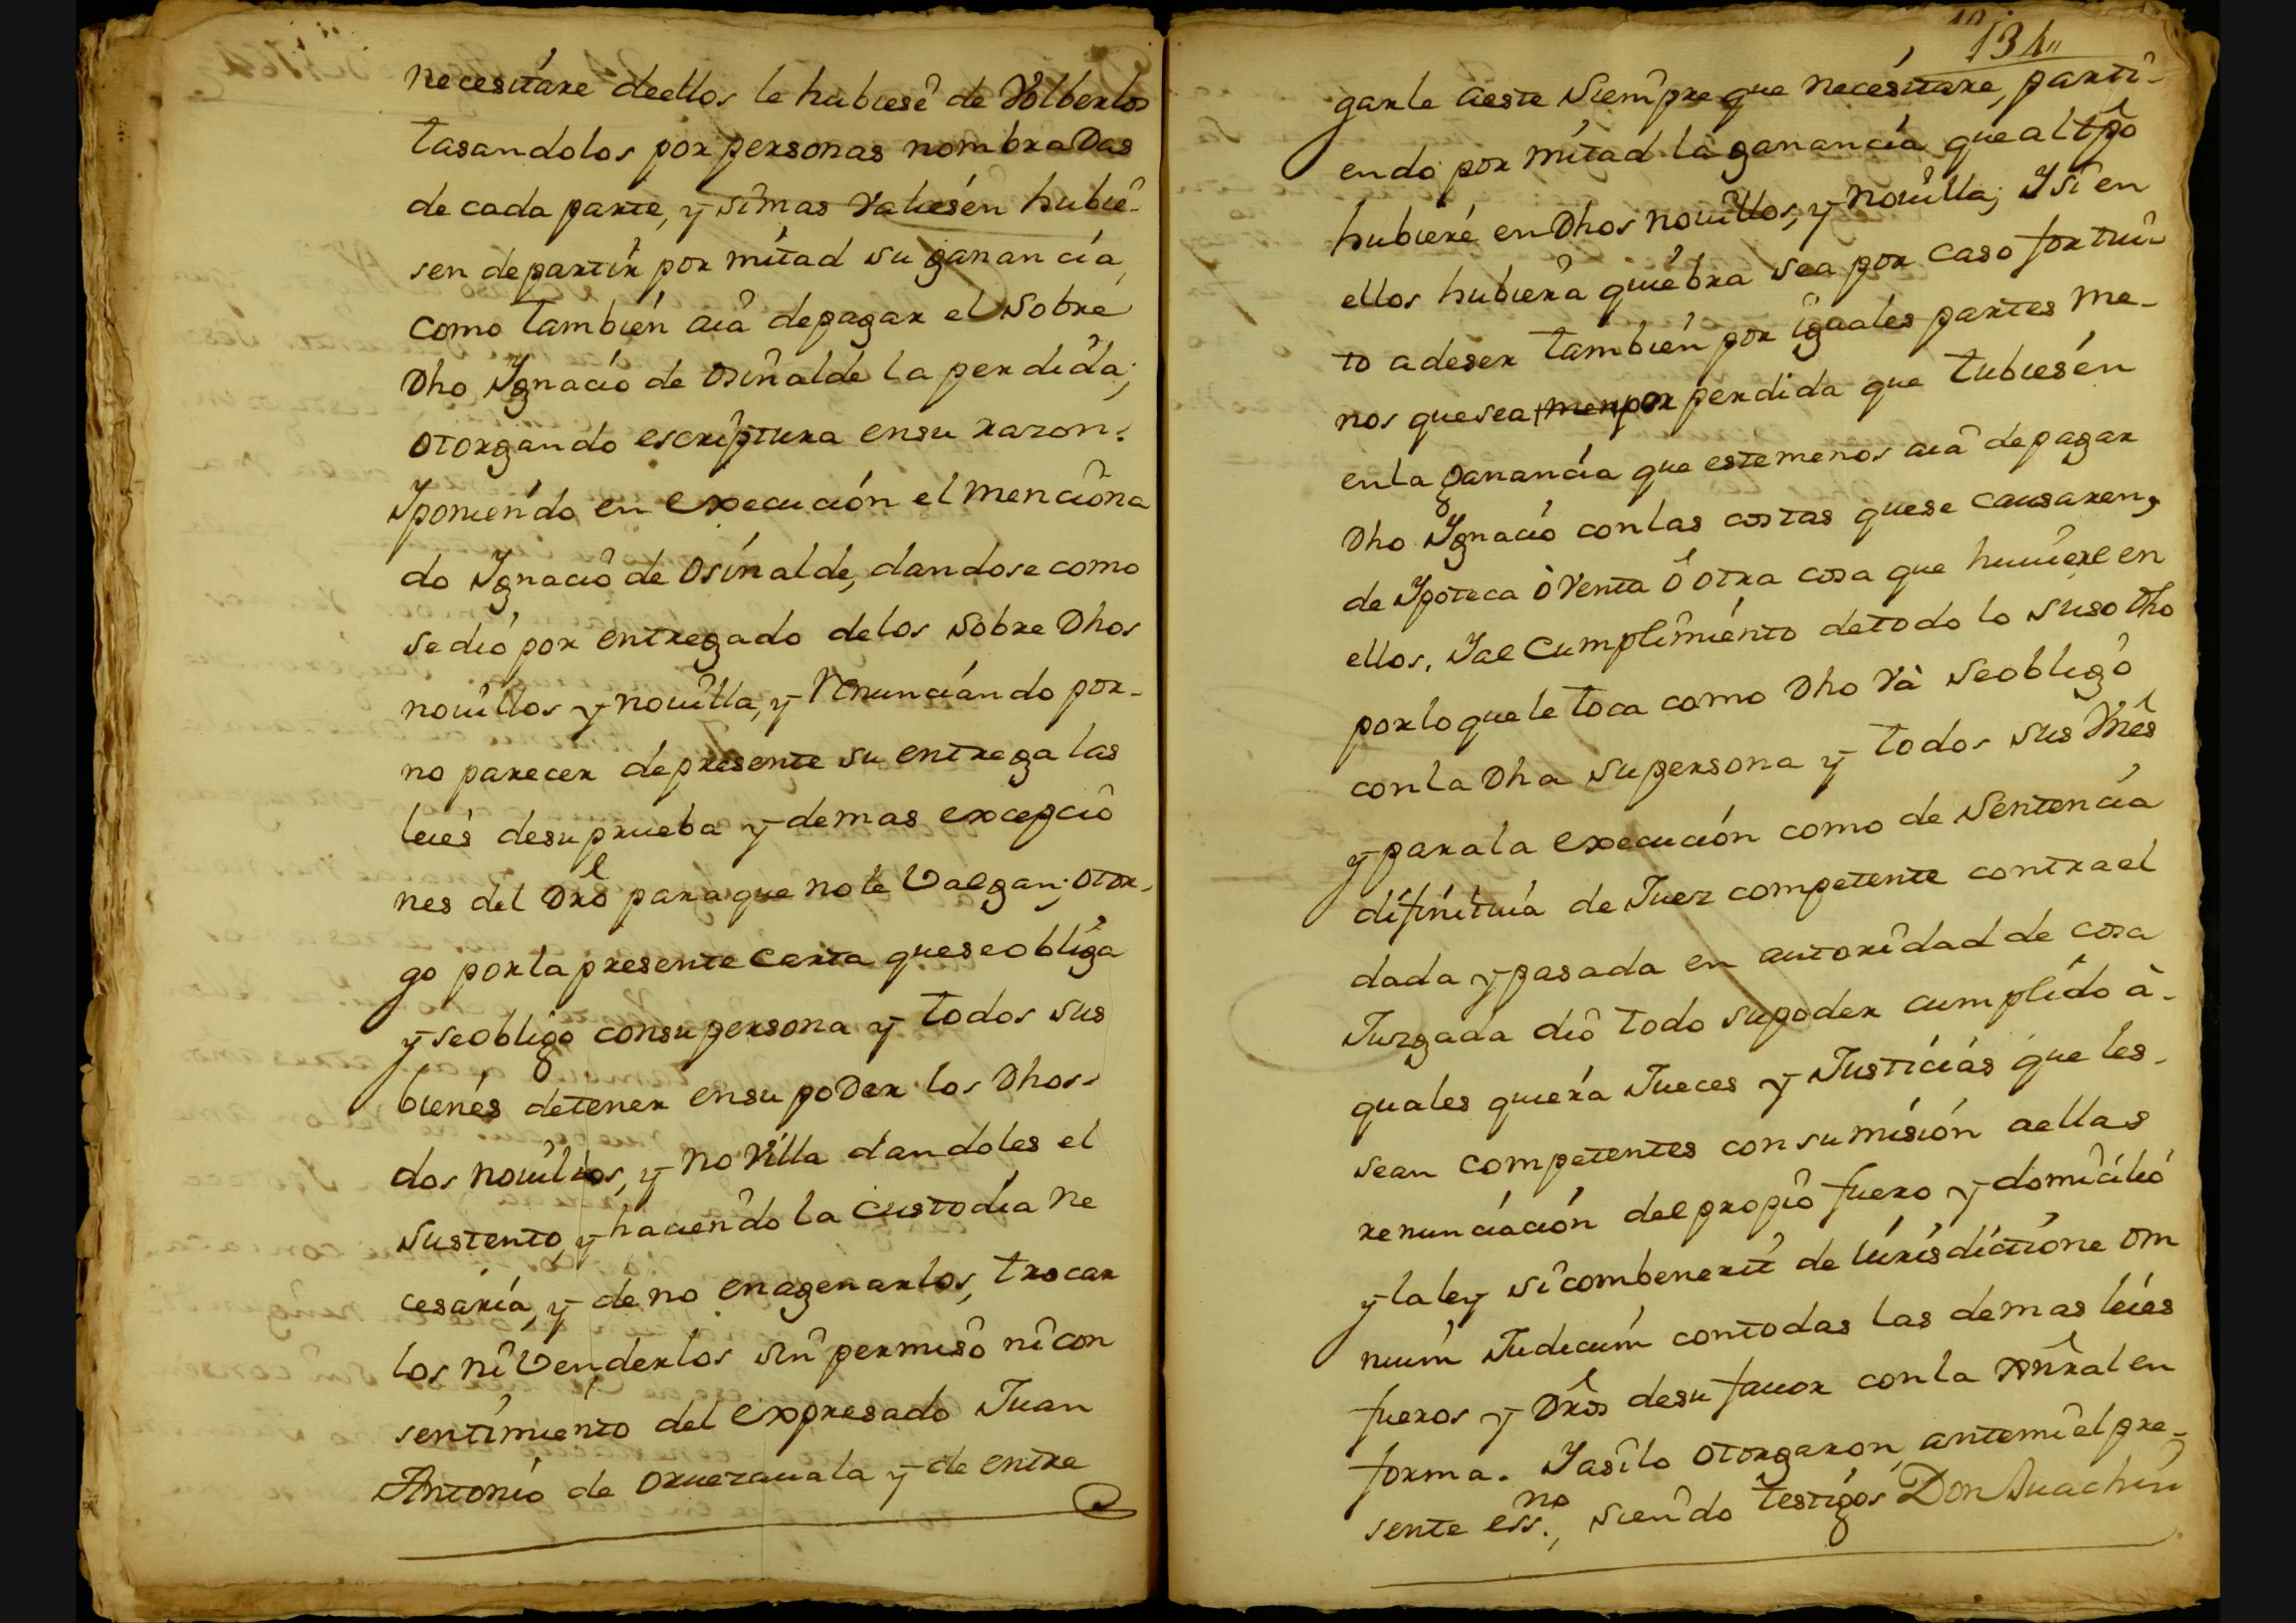 necesitare deellos le hubiese de Volberlos
tasandolos por personas nombradas
de cada parte, y si mas Valiesen hubie-
sen departir por mitad su ganancia,
como tambien aia depagar el Sobre
Dho Ygnacio de Osinalde la perdida;
otorgando escriptura ensu razon:
Yponiendo en execucion el menciona
do Ygnacio de Osinalde, dandose como
sedio por entregado delos Sobre Dhos
nouillos y nouilla, y Renunciando por-
no parecer depresente su entrega las
leies desu prueba y demas excepcio
nes del Dro paraque no le Valgan; otor-
go porla presente Carta queseobliga
y seobligo consu persona y todos sus
bienes detener ensu poder los Dhos
dos nouillos, y noVilla dandoles el
Sustento, y haciendo la custodia ne
cesaria, y de no enagenarlos, trocar
los ni Venderlos sin permiso ni con
sentimiento del expresado Juan
Antonio de oruezauala y de entre
134
garle aeste Siempre que necesitare, parti-
endo por mitad la ganancia que al tpo
hubiere en Dhos nouillos, y nouilla; Y si en
ellos hubiera quiebra sea por caso fortui-
to adeser tambien por iguales partes me-
nos quesea por perdida que tubiesen
enla ganancia que estemenos aia depagar
Dho Ygnacio conlas costas quese causaren,
de Ypoteca ò Venta ô otra cosa que huuiere en
ellos. Yal Cumplimiento detodo lo suso Dho
porloquele toca como Dho Và Seobligò
conla Dha Supersona y todos sus Vnes
y parala execucion como de Sentencia
difinitiuia de Juez competente contrael
dada y pasada en autoridad de cosa
Juzgada dio todo supoder cumplido à-
quales quiera Jueces y Justicias que les-
sean competentes con sumision aellas
renunciacion del propio fuero y domicilio
y laley sicombenerit de Iurisdictione om
nium Judicum contodas las demas leies
fueros y Dros desu fauor conla genral en
forma. Yasilo otorgaron, antemi el pre-
sente essno., siendo testigos Don Juachin